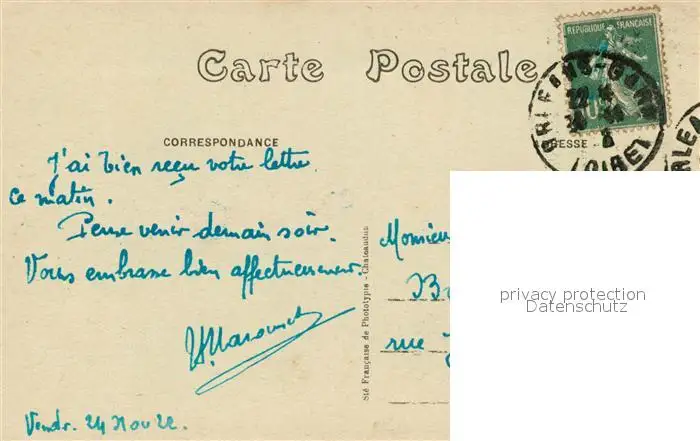 Carte Postale
REPUBLIQUE FRANÇAISE
CORRESPONDANCE
J'ai bien reçu votre lettre
ce matin.
Pense venir demain soir.
Vous embrasse bien affectueusement.
Vendr. 24 Nov 22.
Sté Française de Phototypie - Chateaudun
Monsieur
rue
privacy protection
Datenschutz